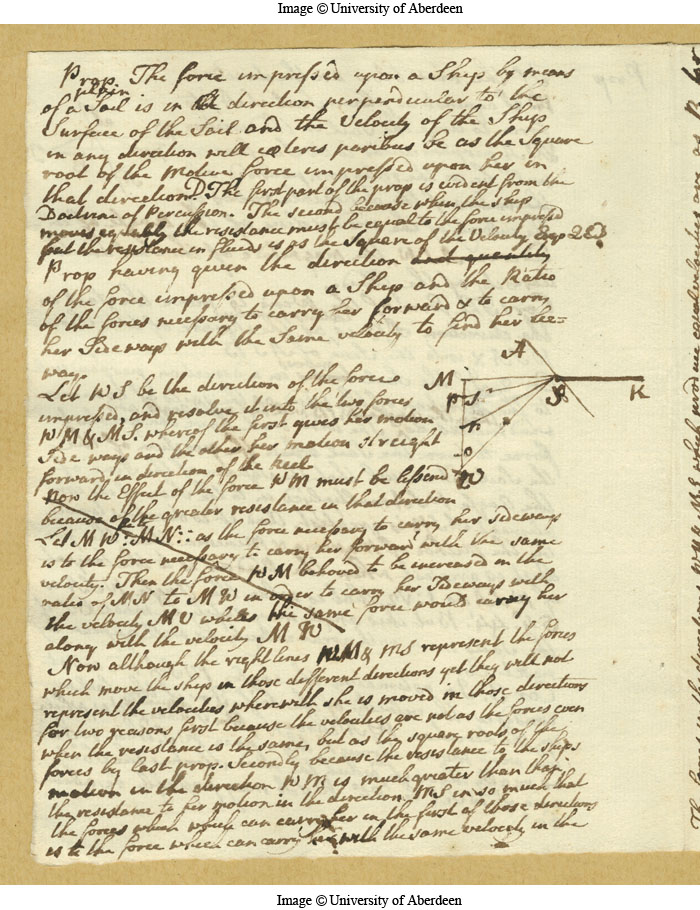 Image © University of Aberdeen
Prop. The force impressed upon a Ship by means
of a Sail is in the direction perpendicular to the
Surface of the Sail and the Velocity of the Ship
in any direction will cæteris paribus be as the Square
root of the Motive force impressed upon her in
that direction. D. The first part of the prop is evident from the
Doctrine of Percussion. The second because when the ship
moves equably the resistance must be equal to the force impressed
but the resistance in fluids is as the Square of the Velocity Ergo QED
Prop having given the direction and quantity
of the force impressed upon a Ship and the Ratio
of the forces necessary to carry her forward & to carry
her Sideways with the Same velocity to find her lee=
way.
Let WS be the direction of the force
impressed, and resolve it into the two forces
WM & MS. whereof the first gives her motion
Side ways and the other her motion streight
forward in direction of the keel
Now the Effect of the force WM must be lessend
because of the greater resistance in that direction
Let MW : MN :: as the force necessary to carry her Sideways
is to the force necessary to carry her forward with the same
velocity. Then the force WM behoved to be increased in the
ratio of MN to MW in order to carry her Sideways with
the velocity MV whiles the same force would carry her
along with the velocity MW
Now although the right lines WM & MS represent the forces
which move the ship in those different directions yet they will not
represent the velocities wherewith she is moved in those directions
for two reasons first because the velocities are not as the forces even
when the resistance is the same, but as the square roots of the
forces by last prop. Secondly because the resistance to the ships
motion in the direction WM is much greater than
the resistance to her motion in the direction MS in so much that
the forces which which can carry her in the first of those directions
is to the force which can carry her with the same velocity in the
A
M
P
S
K
n
o
W
Image © University of Aberdeen